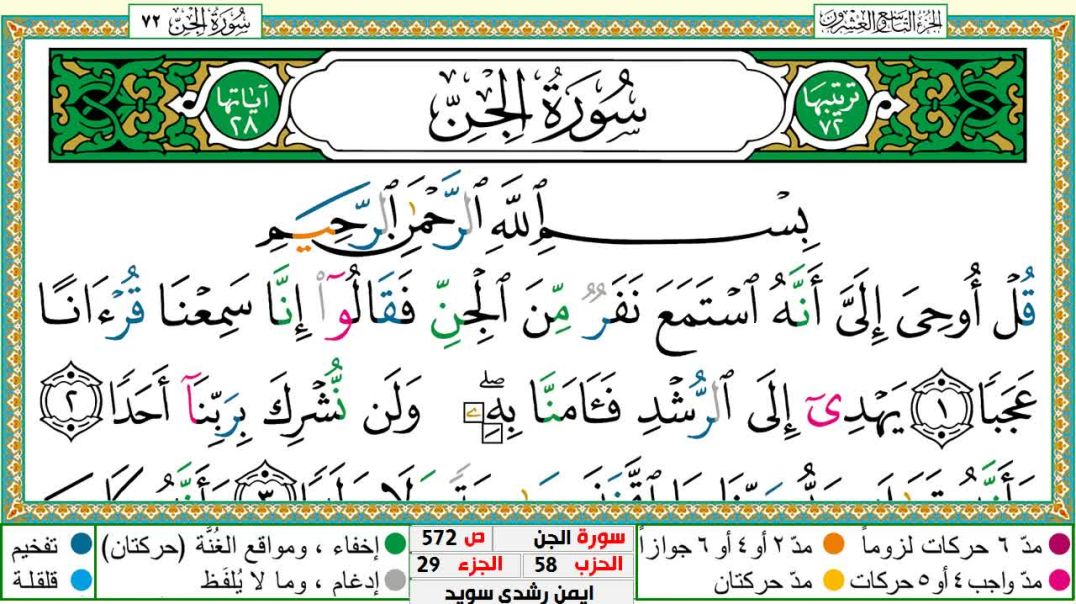 سُورَةُ الجِنّ ٧٢
الجزء التاسع والعشرون
ترتيبها ٧٢
سُورَةُ الجِنِّ
آياتها ٢٨
بِسْمِ ٱللَّهِ ٱلرَّحْمَٰنِ ٱلرَّحِيمِ
قُلْ أُوحِىَ إِلَىَّ أَنَّهُ ٱسْتَمَعَ نَفَرٌ مِّنَ ٱلْجِنِّ فَقَالُوٓا۟ إِنَّا سَمِعْنَا قُرْءَانًا
عَجَبًا ١ يَهْدِىٓ إِلَى ٱلرُّشْدِ فَـَٔامَنَّا بِهِۦ ۖ وَلَن نُّشْرِكَ بِرَبِّنَآ أَحَدًا ٢
مدّ ٦ حركات لزوماً
مدّ ٢ أو ٤ أو ٦ جوازاً
مدّ واجب ٤ أو ٥ حركات
مدّ حركتان
سورة الجن ص 572
الحزب 58 الجزء 29
ايمن رشدي سويد
إخفاء ، ومواقع الغُنَّة (حركتان)
إدغام ، وما لا يُلفَظ
تفخيم
قلقلة